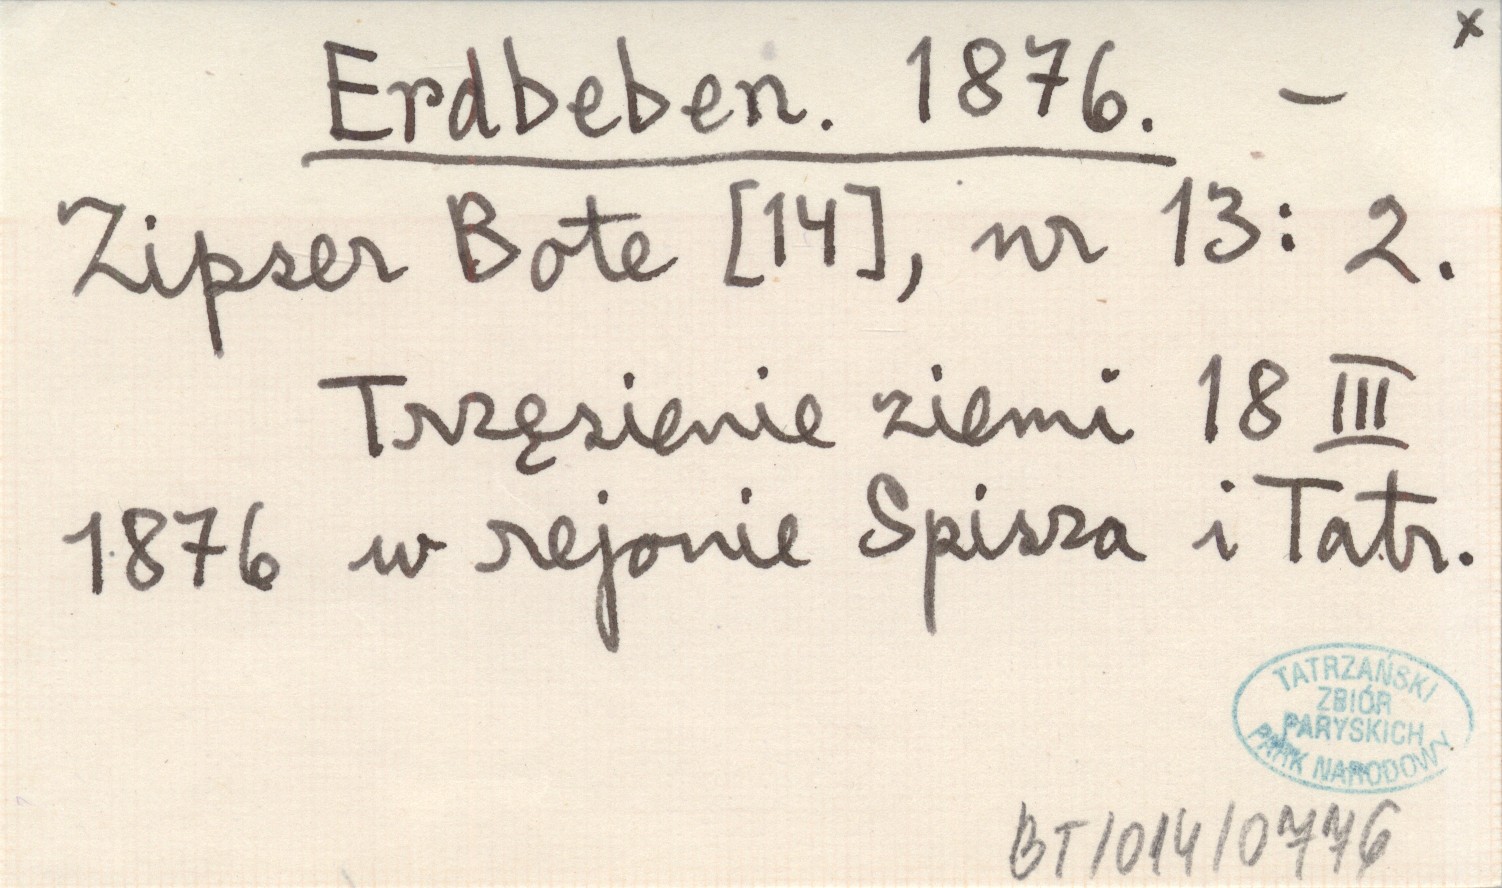 x
Erdbeben. 1876. –
Zipser Bote [14], nr 13: 2.
Trzęsienie ziemi 18 III
1876 w rejonie Spisza i Tatr.
TATRZAŃSKI
ZBIÓR
PARYSKICH
PARK NARODOWY
BT/014/0776